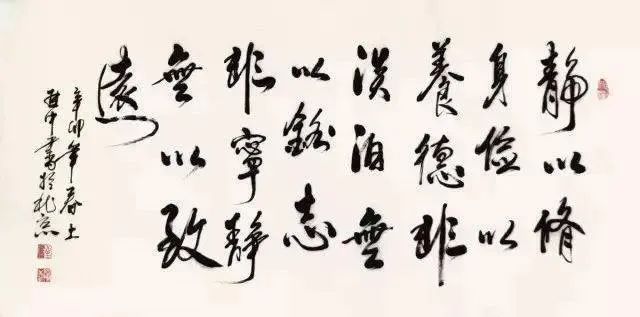 靜以脩
身儉以
養德非
淡泊無
以銘志
非寧靜
無以致
遠
辛卯年春
中書於北京